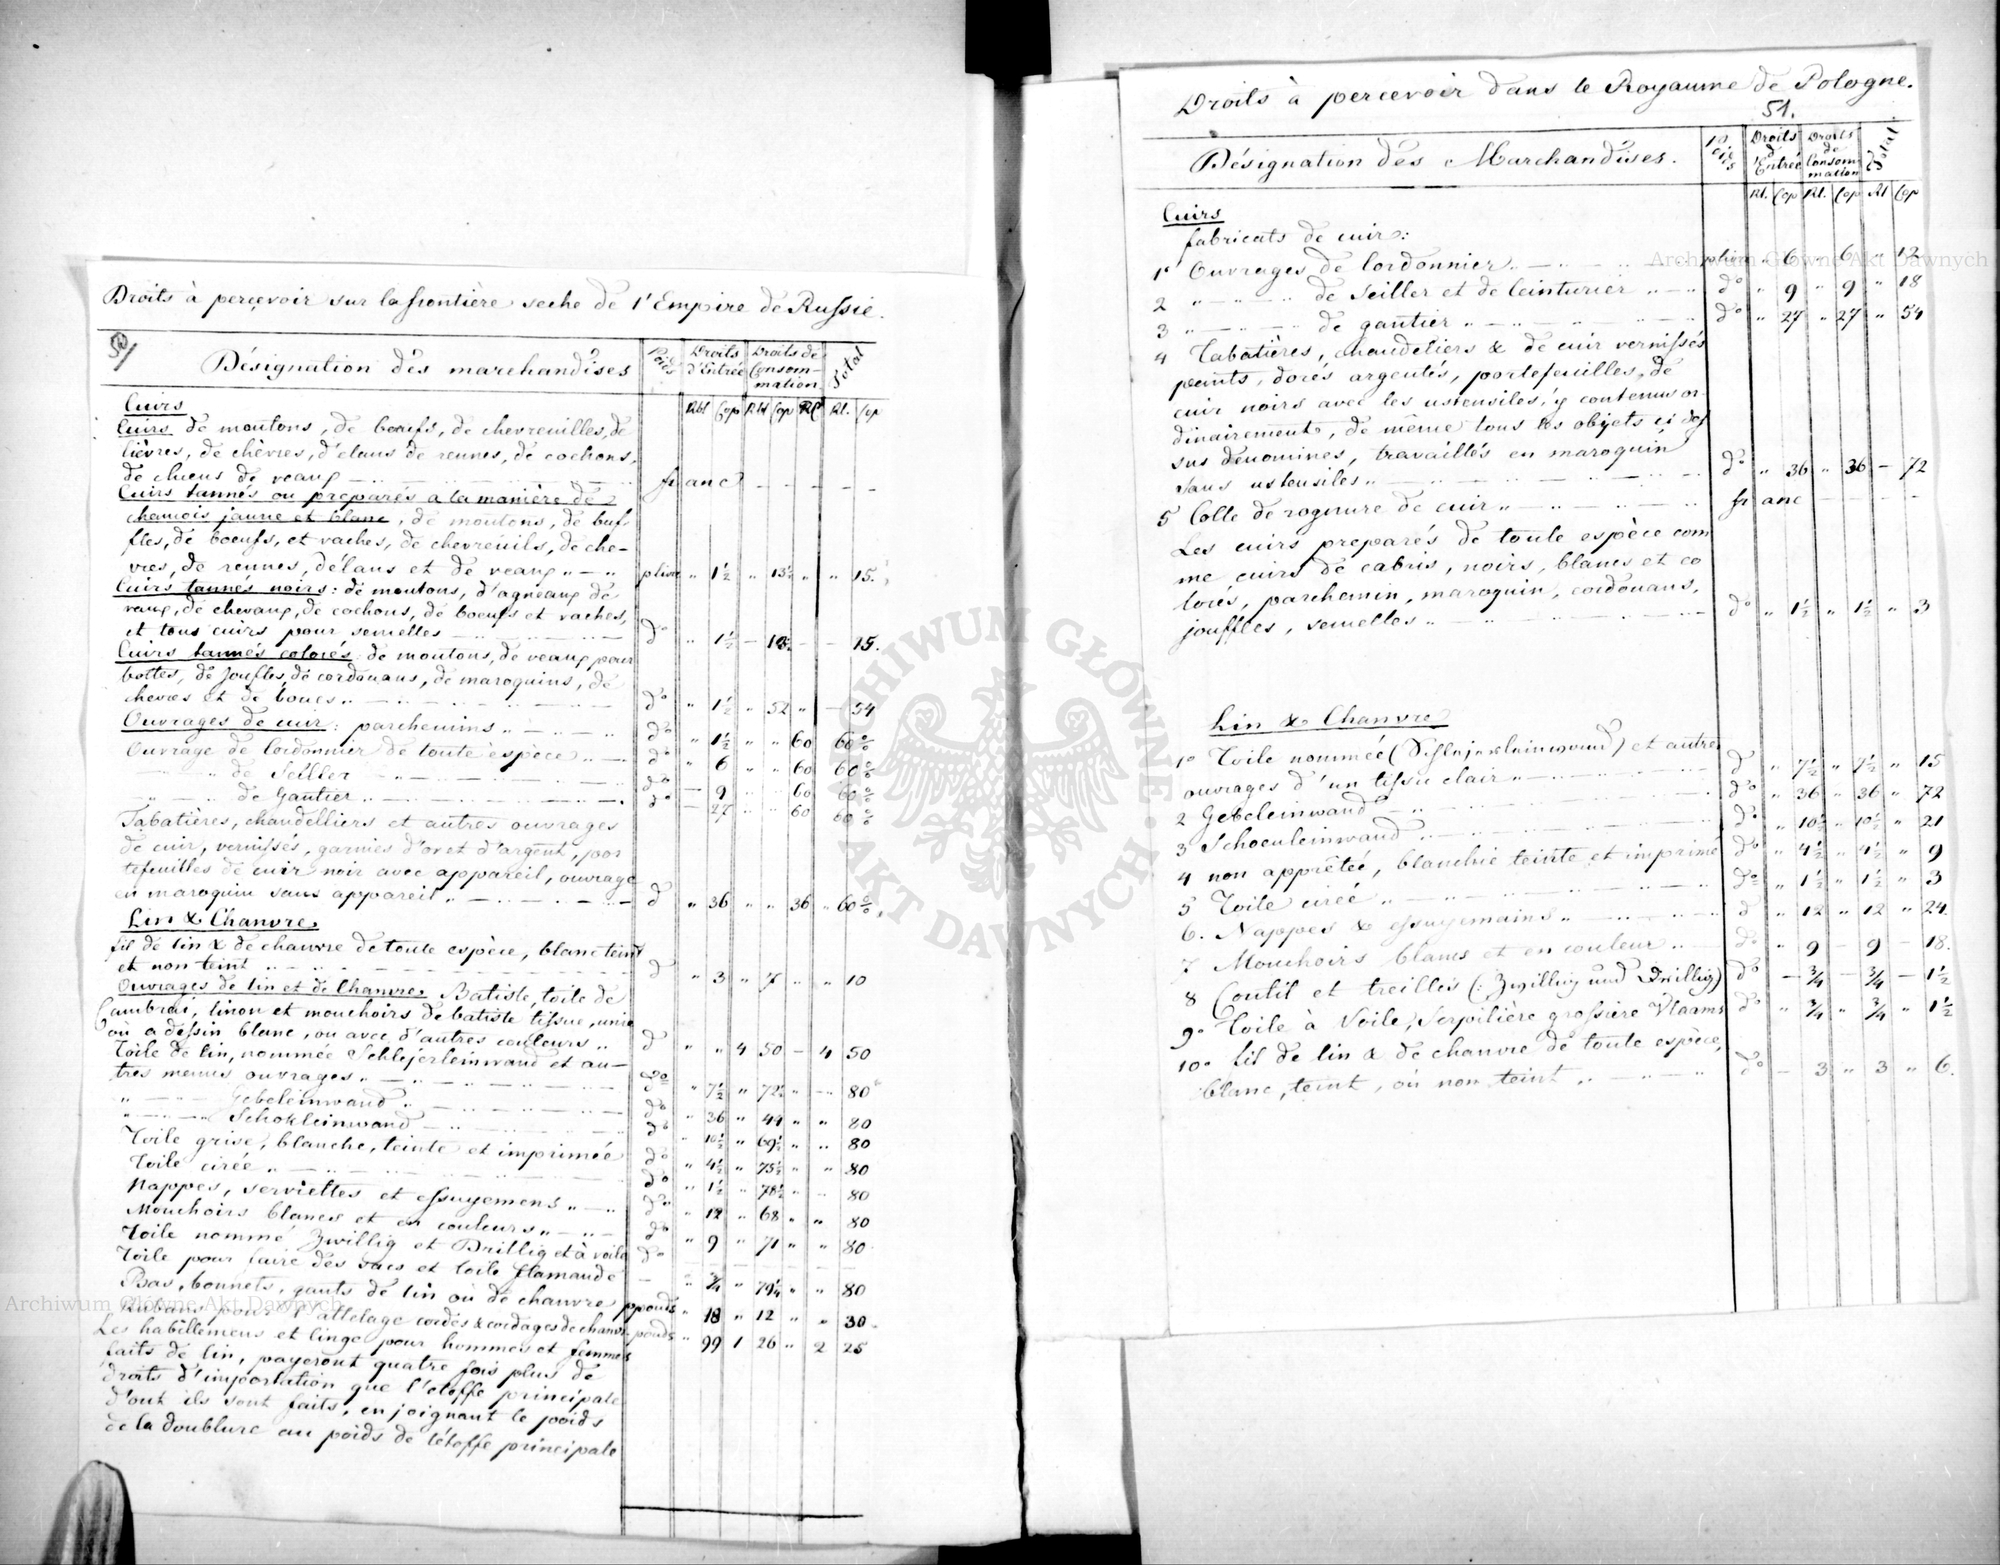 Droits à percevoir sur la frontière seche de l'Empire de Russie.
Désignation des marchandises Poids Droits d'Entrée Droits de Consommation Total
Rbl Cop Rbl Cop Rl. Cop
Cuirs
Cuirs de moutons, de boeufs, de chevreuilles, de
lièvres, de chèvres, d'élans de rennes, de cochons,
de chiens de veaux franc
Cuirs tannés ou preparés a la manière de
chamois jaune et blanc, de moutons, de buf-
fles, de boeufs, et vaches, de chevreuils, de che-
vres, de rennes, d'élans et de veaux " p livre " 1½ " 13½ " " 15.
Cuirs tannés noirs: de moutons, d'agneaux de
veaux, de chevaux, de cochons, de boeufs et vaches,
et tous cuirs pour semelles d° " 1½ 15.
Cuirs tannés colorés: de moutons, de veaux pour
bottes, de joufles, de cordouans, de maroquins, de
chevres et de boucs " d° " 1½ " 52 " 54
Ouvrages de cuir: parchemins " d° " 1½ " " 60 60 %
Ouvrage de Cordonnier de toute espèce " d° " 6 " " 60 60 %
" de Seiller d° 9 60 60 %
" de Gantier d° 27 60 60 %
Tabatières, chandelliers et autres ouvrages
de cuir, vernissés, garnies d'or et d'argent, por
tefeuilles de cuir noir avec appareil, ouvrage
en maroquin sans appareil " d " 36 " " 36 " 60 %
Lin & Chanvre
fil de lin & de chanvre de toute espèce, blanc teint
et non teint d " 3 " 7 " " 10
Ouvrages de lin et de Chanvre Batiste, toile de
Cambrai, linon et mouchoirs de batiste tissue, unie
où a dessin blanc, ou avec d'autres couleurs " d " " 4 50 4 50
Toile de lin, nommée Schlejerleinwand et au-
tres menus ouvrages " d° " 7½ " 72½ " 80
" Gebeleinwand " d° " 36 " 44 " " 80
" Schokleinwand d° " 10½ " 69½ " " 80
Toile grise, blanche, teinte et imprimée d° " 4½ " 75½ " " 80
Toile cirée " d° " 1½ " 78½ " 80
Nappes, serviettes et essuyemens " d° " 12 " 68 " " 80
Mouchoirs blancs et en couleurs " d° " 9 " 71 " " 80
Toile nommé Zwillig et Drillig et à voile d°
Toile pour faire des sacs et toile flamande " ¾ " 79¼ " " 80
Bas, bonnets, gants de lin où de chanvre p pouds " 18 " 12 " " 30
Rubans pour l'attelage cordes & cordages de chanvre pouds " 99 1 26 " 2 25
Les habillemens et linge pour hommes et femmes
faits de lin, payeront quatre fois plus de
droits d'importation que l'etoffe principale
d'out ils sont faits, en joignant le poids
de la doublure au poids de l'étoffe principale
Droits à percevoir dans le Royaume de Pologne.
51.
Désignation des Marchandises. Poids Droits d'Entrée Droits de Consommation Total
Rl. Cop Rl. Cop Rl Cop
Cuirs
fabricats de cuir:
1° Ouvrages de Cordonnier " p livre " 6 " 6 " 12
2 " de Seiller et de Ceinturier " d° " 9 " 9 " 18
3 " de gantier " d° " 27 " 27 " 54
4 Tabatières, chandeliers & de cuir vernissés
peints, dorés argentés, portefeuilles de
cuir noirs avec les ustensiles, y contenus or-
dinairement, de même tous les objets ci des
sus denomines, travaillés en maroquin
sans ustensiles " d° " 36 " 36 72
5 Colle de rognure de cuir " franc
Les cuirs preparés de toute espèce com
me cuirs de cabris, noirs, blancs et co
lorés, parchemin, maroquin, cordouans,
jouffles, semelles " d° " 1½ " 1½ " 3
Lin & Chanvre
1° Toile nommée et autres
ouvrages d'un tissu clair " d° " 7½ " 7½ " 15
2 Gebeleinwand d° " 36 " 36 " 72
3 Schockleinwand d° " 10½ " 10½ " 21
4 non apprêtée, blanchie teinte et imprimé d° " 4½ " 4½ " 9
5 Toile cirée " d° " 1½ " 1½ " 3
6. Nappes & essuyemains " d " 12 " 12 " 24
7 Mouchoirs blancs et en couleur " d° " 9 9 18.
8 Coutil et treilles (: Zwillig und Drillig) d° ¾ ¾ 1½
9° Toile à Voile, Serpilière grossière Vlaams d° " ¾ " ¾ " 1½
10° fil de lin & de chanvre de toute espèce,
blanc, teint, où non teint " d° 3 " 3 " 6.
Archiwum Główne Akt Dawnych
ARCHIWUM GŁÓWNE AKT DAWNYCH
Archiwum Główne Akt Dawnych